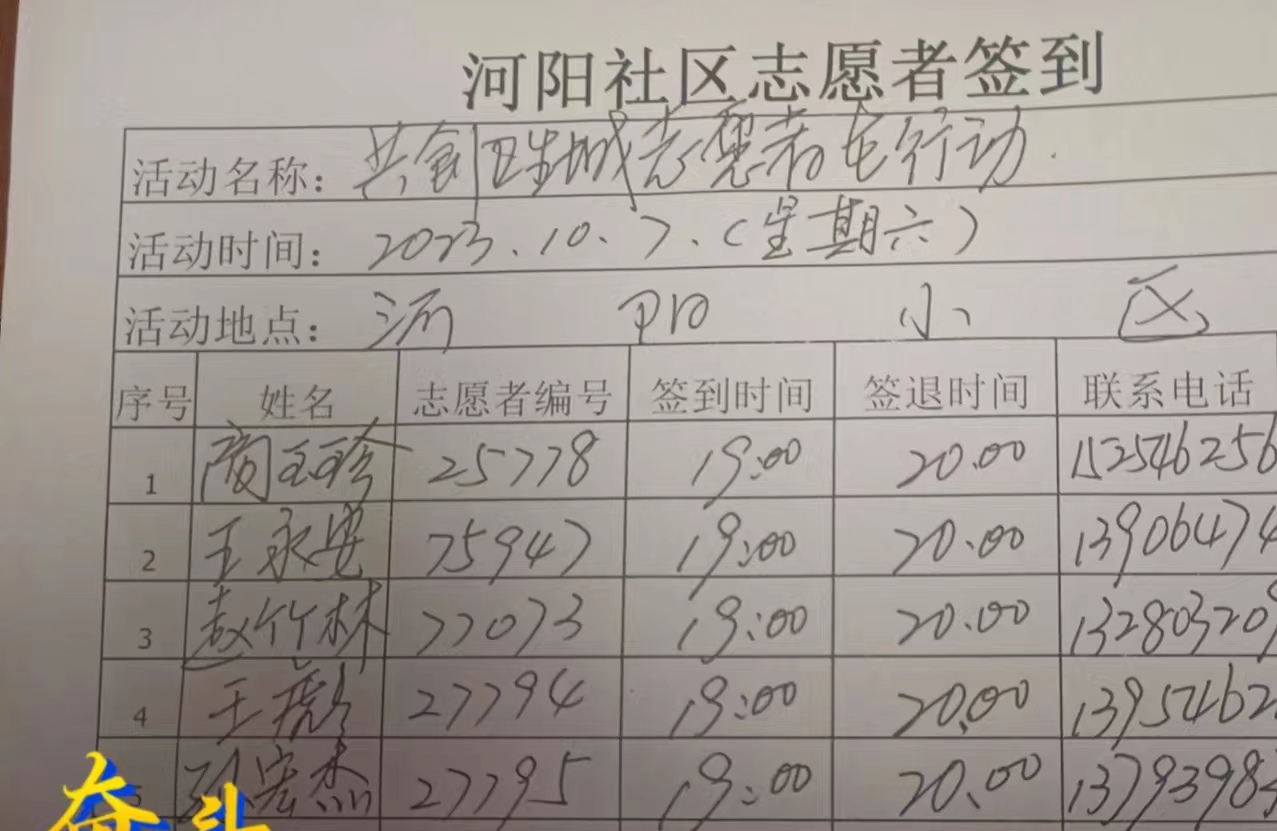 河阳社区志愿者签到
活动名称：共创卫生城志愿者在行动.
活动时间：2023.10.7.(星期六)
活动地点：河 阳 小 区
序号 姓名 志愿者编号 签到时间 签退时间 联系电话
1 25778 19:00 20.00 152546256
2 王永安 75947 19:00 20.00 13906474
3 赵竹林 27073 19:00 20.00 132803209
4 王 27794 19:00 20.00 13954762
5 孙宏杰 27795 19:00 20.00 13793984
奋斗